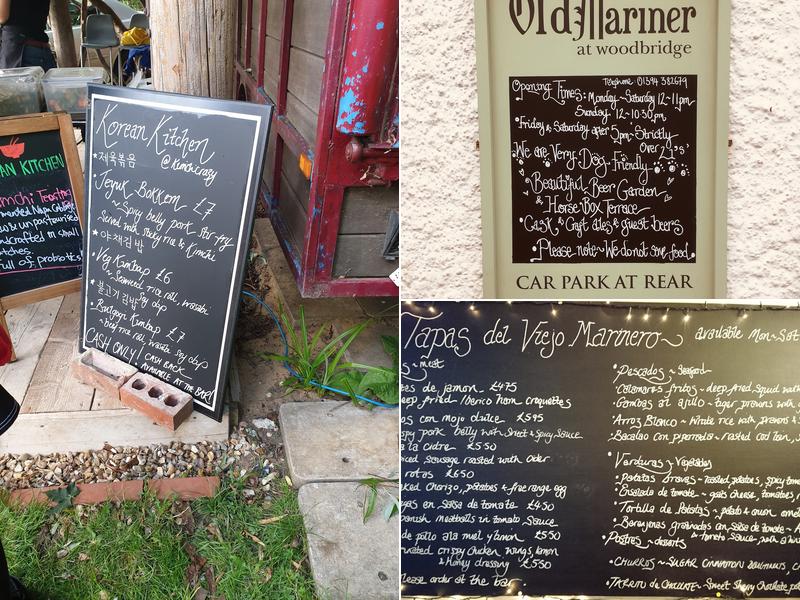 Korean Kitchen
*제육볶음 @kimchicrazy
Jeyuk Bokkem £7
~ Spicy belly pork stir fry
Served with sticky rice & Kimchi
*야채김밥
Veg Kimbap £6
~ Seaweed rice roll, wasabi
Soy dip
*불고기김밥
Bulgogi Kimbap £7
~ beef rice roll, wasabi soy dip
CASH ONLY! CASH BACK
AVAILABLE AT THE BAR!
AN KITCHEN
mchi Tasting
mented Napa Cabbage
unpasteurised
ndcrafted in small
tches.
full of probiotics
Old Mariner
at woodbridge
Telephone: 01394 382679
Opening Times: Monday~Saturday 12~11pm
Sunday 12~10.30pm
•Friday & Saturday after 5pm; Strictly
Over 21's'
•We are Very Dog Friendly
•Beautiful Beer Garden
& Horse Box Terrace~
•Cask & Craft ales & guest beers
•Please note~We do not save food.
CAR PARK AT REAR
Tapas del Viejo Marinero~ available Mon~Sat
s~meat
es de jamon £4.75
eep fried Iberico ham croquettes
os con mojo dulce £5.95
spy pork belly with Sweet & Spicy Sauce
a la Cidre £5.50
iced sausage roasted with Cider
rotos £6.50
ked Chorizo, potatoes & free range egg
gas en Salsa de tomato £4.50
panish meatballs in tomato Sauce
de pollo ala miel y limon £5.50
nated crispy chicken wings, lemon
& Honey dressing £5.50
Please order at the bar
•Pescados ~ Seafood
•Calamares fritos ~ deep fried, Squid with
•Gambas al ajillo ~ tiger prawns with
•Arros Blanco ~ White rice with prawns &
•Bacalao con piperrada ~ roasted cod loin, S
•Verduras ~ Vegetables
•Patatas bravas ~ roasted potatoes, spicy tom
•Ensalada de tomate ~ goats cheese, tomatoes,
•Tortilla de Patatas ~ potato & onion ome
•Berenjenas gratinadas con Salsa de tomate ~
& tomato Sauce, with a
•Postres ~ desserts
•CHURROS ~ SUGAR CINNAMON DOUGHNUTS, C
•TARRITO de CHOCOLATE ~ Sweet Sherry Chocolate pot